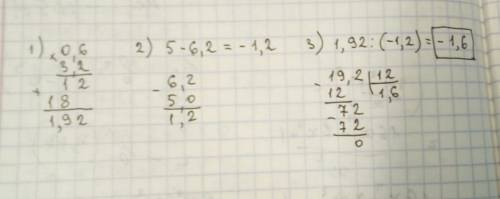 1) × 0,6
3,2
+ 12
18
1,92
2) 5 - 6,2 = - 1,2
- 6,2
5,0
1,2
3) 1,92 : (-1,2) = - 1,6
- 19,2 | 12
12 1,6
- 72
72
0